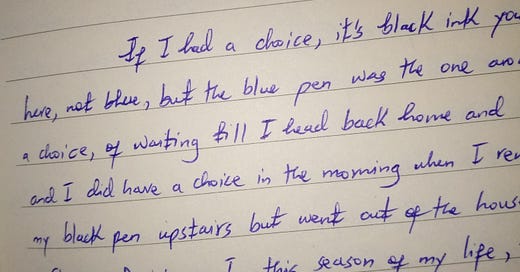 If I had a choice, it's black ink you
here, not blue, but the blue pen was the one aro
a choice, of waiting till I head back home and
and I did have a choice in the morning when I re
my black pen upstairs but went out of the hous
I this season of my life,